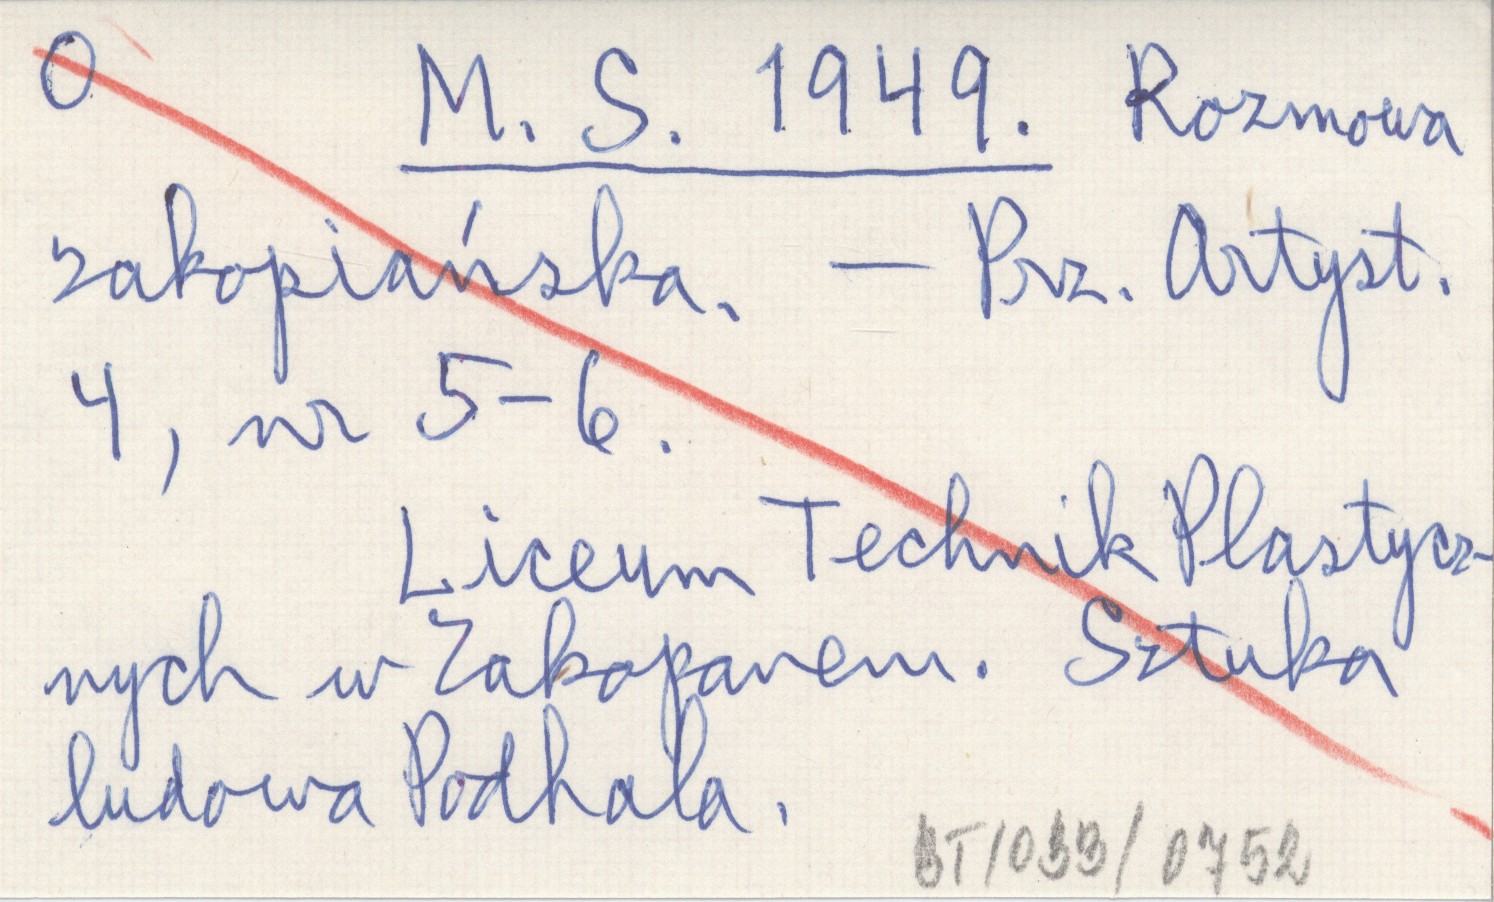 O M. S. 1949. Rozmowa
zakopiańska. — Prz. Artyst.
4, nr 5-6.
Liceum Technik Plastycz-
nych w Zakopanem. Sztuka
ludowa Podhala.
BT/033/0752